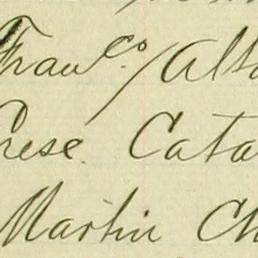 Franco / Alta
rese Cata
Martin Ch